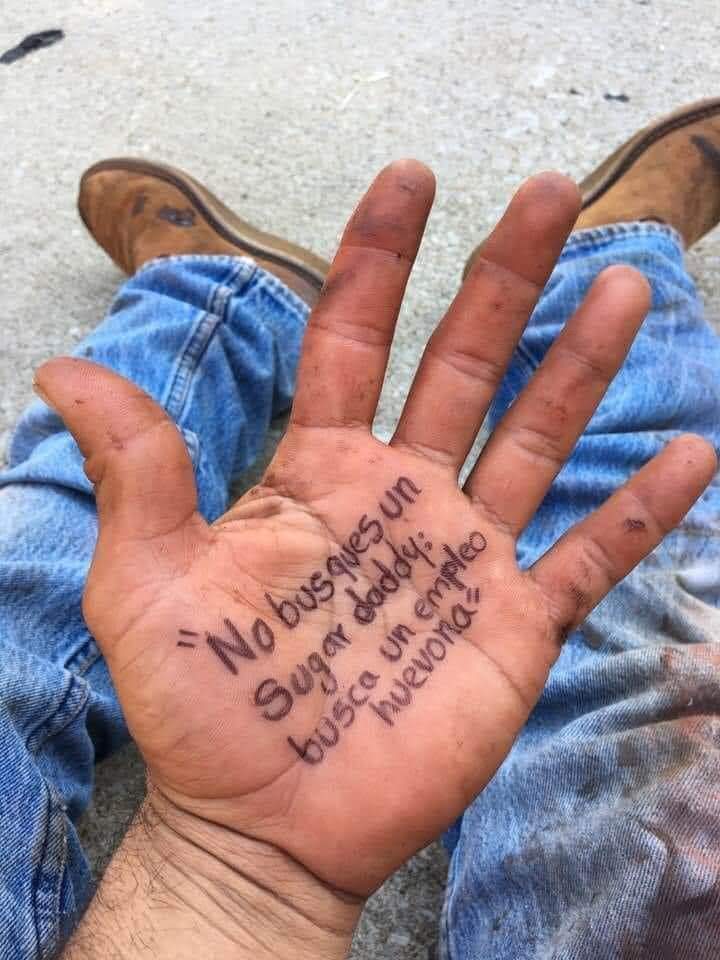 "No busques un
Sugar daddy:
busca un empleo
huevona"